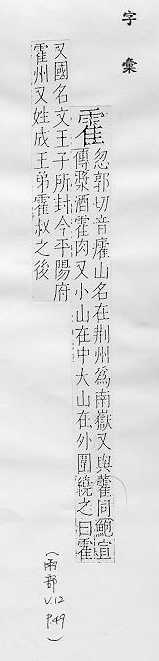 字彙
霍
忽郭切音癨山名在荆州爲南嶽又與藿同鮑宣
傳漿酒霍肉又小山在中大山在外圍繞之曰霍
又國名文王子所封今平陽府
霍州又姓成王弟霍叔之後
(雨部
V.12
P.49)